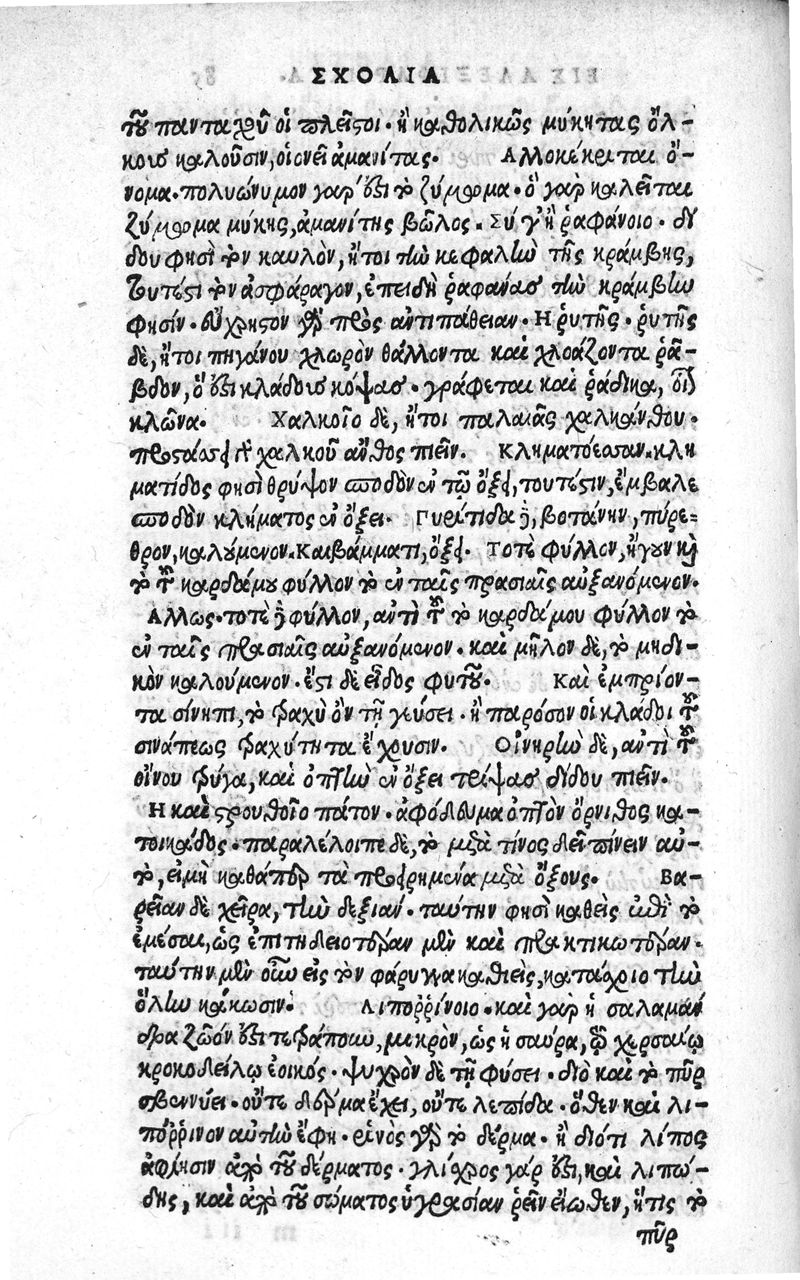 ΣΧΟΛΙΑ
τοῦ πανταχοῦ οἱ πλεῖστοι. ἢ καθολικῶς μύκητας ὅλ-
κους καλοῦσιν, οἱονεὶ ἀμανίτας. Αλλοκέκεται ὄ-
νομα. πολυώνυμον γάρ ἐστι τὸ ζύμωμα. ὃ γὰρ καλεῖται
ζύμωμα μύκης, ἀμανίτης βῶλος. Σὺ γ' ἢ ῥαφάνοιο. δί
δου φησὶ τὸν καυλὸν, ἤτοι τὴν κεφαλὴν τῆς κράμβης,
τουτέστι τὸν ἀσφάραγον, ἐπειδὴ ῥαφάνας τὴν κράμβην
φησίν. εὔχρηστον γὰρ πρὸς ἀντιπάθειαν. Η ῥυτῆς. ῥυτῆς
δὲ, ἤτοι πηγάνου χλωρὸν θάλλοντα καὶ χλοάζοντα ῥά-
βδον, ὅ ἐστι κλάδους κόψας. γράφεται καὶ ῥάδικα, οἷον
κλῶνα. Χαλκοῖο δὲ, ἤτοι παλαιᾶς χαλκάνθου.
προστάσσει δὲ χαλκοῦ ἄνθος πιεῖν. Κληματόεσσαν. κλη
ματίδος φησὶ θρύψον σποδὸν ἐν τῷ ὄξει, τουτέστιν, ἔμβαλε
σποδὸν κλήματος ἐν ὄξει. Γυρίτιδα δὲ, βοτάνην, πύρε-
θρον, καλούμενον. Καιβάμματι, ὄξει. Τοτὲ φύλλον, ἤγουν καὶ
τὸ τοῦ καρδάμου φύλλον τὸ ἐν ταῖς πρασιαῖς αὐξανόμενον.
Αλλως. τοτὲ δὲ φύλλον, ἀντὶ τοῦ τὸ καρδάμου φύλλον τὸ
ἐν ταῖς πρασιαῖς αὐξανόμενον. καὶ μῆλον δὲ, τὸ μηδι-
κὸν καλούμενον. ἔστι δὲ εἶδος φυτοῦ. Καὶ ἐμπρίον-
τα σίνηπι, τὸ τραχὺ ὂν τῇ γεύσει. ἢ παρόσον οἱ κλάδοι τοῦ
σινάπεως τραχύτητα ἔχουσιν. Οἰνηρὴν δὲ, ἀντὶ τοῦ
οἴνου τρύγα, καὶ ὀπτὴν ἐν ὄξει τρίψας δίδου πιεῖν.
Η καὶ στρουθοῖο πάτον. ἀφόδευμα ὀπτὸν ὄρνιθος κα-
τοικάδος. παραλέλοιπε δὲ, τὸ μετὰ τίνος δεῖ πίνειν αὐ-
τὸ, εἰ μὴ καθάπερ τὰ προειρημένα μετὰ ὄξους. Βα-
ρεῖαν δὲ χεῖρα, τὴν δεξιάν. ταύτην φησὶ καθεὶς ἐπὶ τὸ
ἐμέσαι, ὡς ἐπιτηδειοτέραν μὲν καὶ πρακτικωτέραν.
ταύτην μὲν οὖν εἰς τὸν φάρυγγα καθιεὶς, κατάχριε τὴν
ὅλην κάκωσιν. Λιποῤῥίνοιο. καὶ γὰρ ἡ σαλαμάν
δρα ζῶόν ἐστι τετράπουν, μικρὸν, ὡς ἡ σαύρα, τῷ χερσαίῳ
κροκοδείλῳ ἐοικός. ψυχρὸν δὲ τῇ φύσει. διὸ καὶ τὸ πῦρ
σβεννύει. οὔτε δέρμα ἔχει, οὔτε λεπίδα. ὅθεν καὶ λι-
πόῤῥινον αὐτὴν ἔφη. ῥινὸς γὰρ τὸ δέρμα. ἢ διότι λίπος
ἀφίησιν ἀπὸ τοῦ δέρματος. γλίσχρος γάρ ἐστι, καὶ λιπώ-
δης, καὶ ἀπὸ τοῦ σώματος ὑγρασίαν ῥεῖν εἴωθεν, ἥτις τὸ
πῦρ